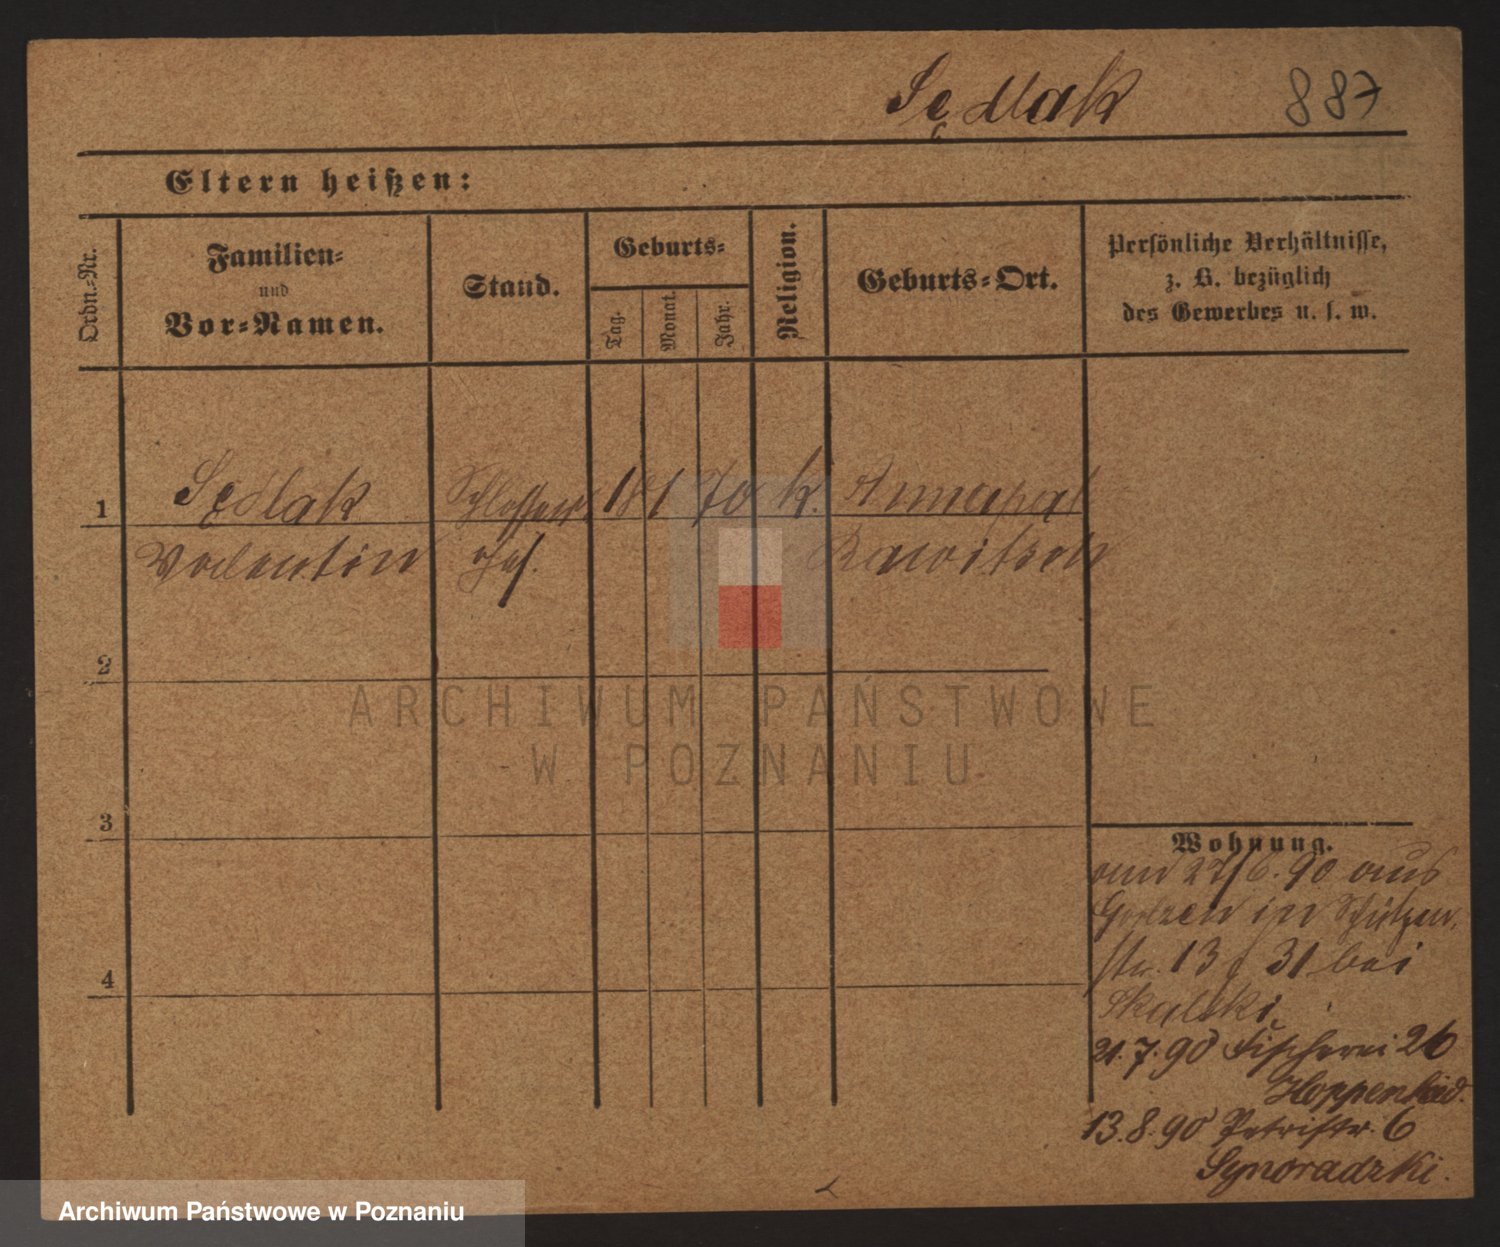 Sędlak 887
Eltern heißen:
Ordn.-Nr.
Familien-
und
Vor-Namen.
Stand.
Geburts-
Tag.
Monat.
Jahr.
Religion.
Geburts-Ort.
Persönliche Verhältnisse,
z. B. bezüglich
des Gewerbes u. s. w.
1 Sędlak Schlosser 18 1 70 k. Annapol
Valentin Ges. Rawitsch
2
3
4
Wohnung.
am 27/6. 90 aus
in Schützen
str. 13 31 bei
Skulski.
21.7.90 Fischerei 26
13.8.90 Petristr. 6
Synoradzki.
ARCHIWUM PAŃSTWOWE
W POZNANIU
Archiwum Państwowe w Poznaniu